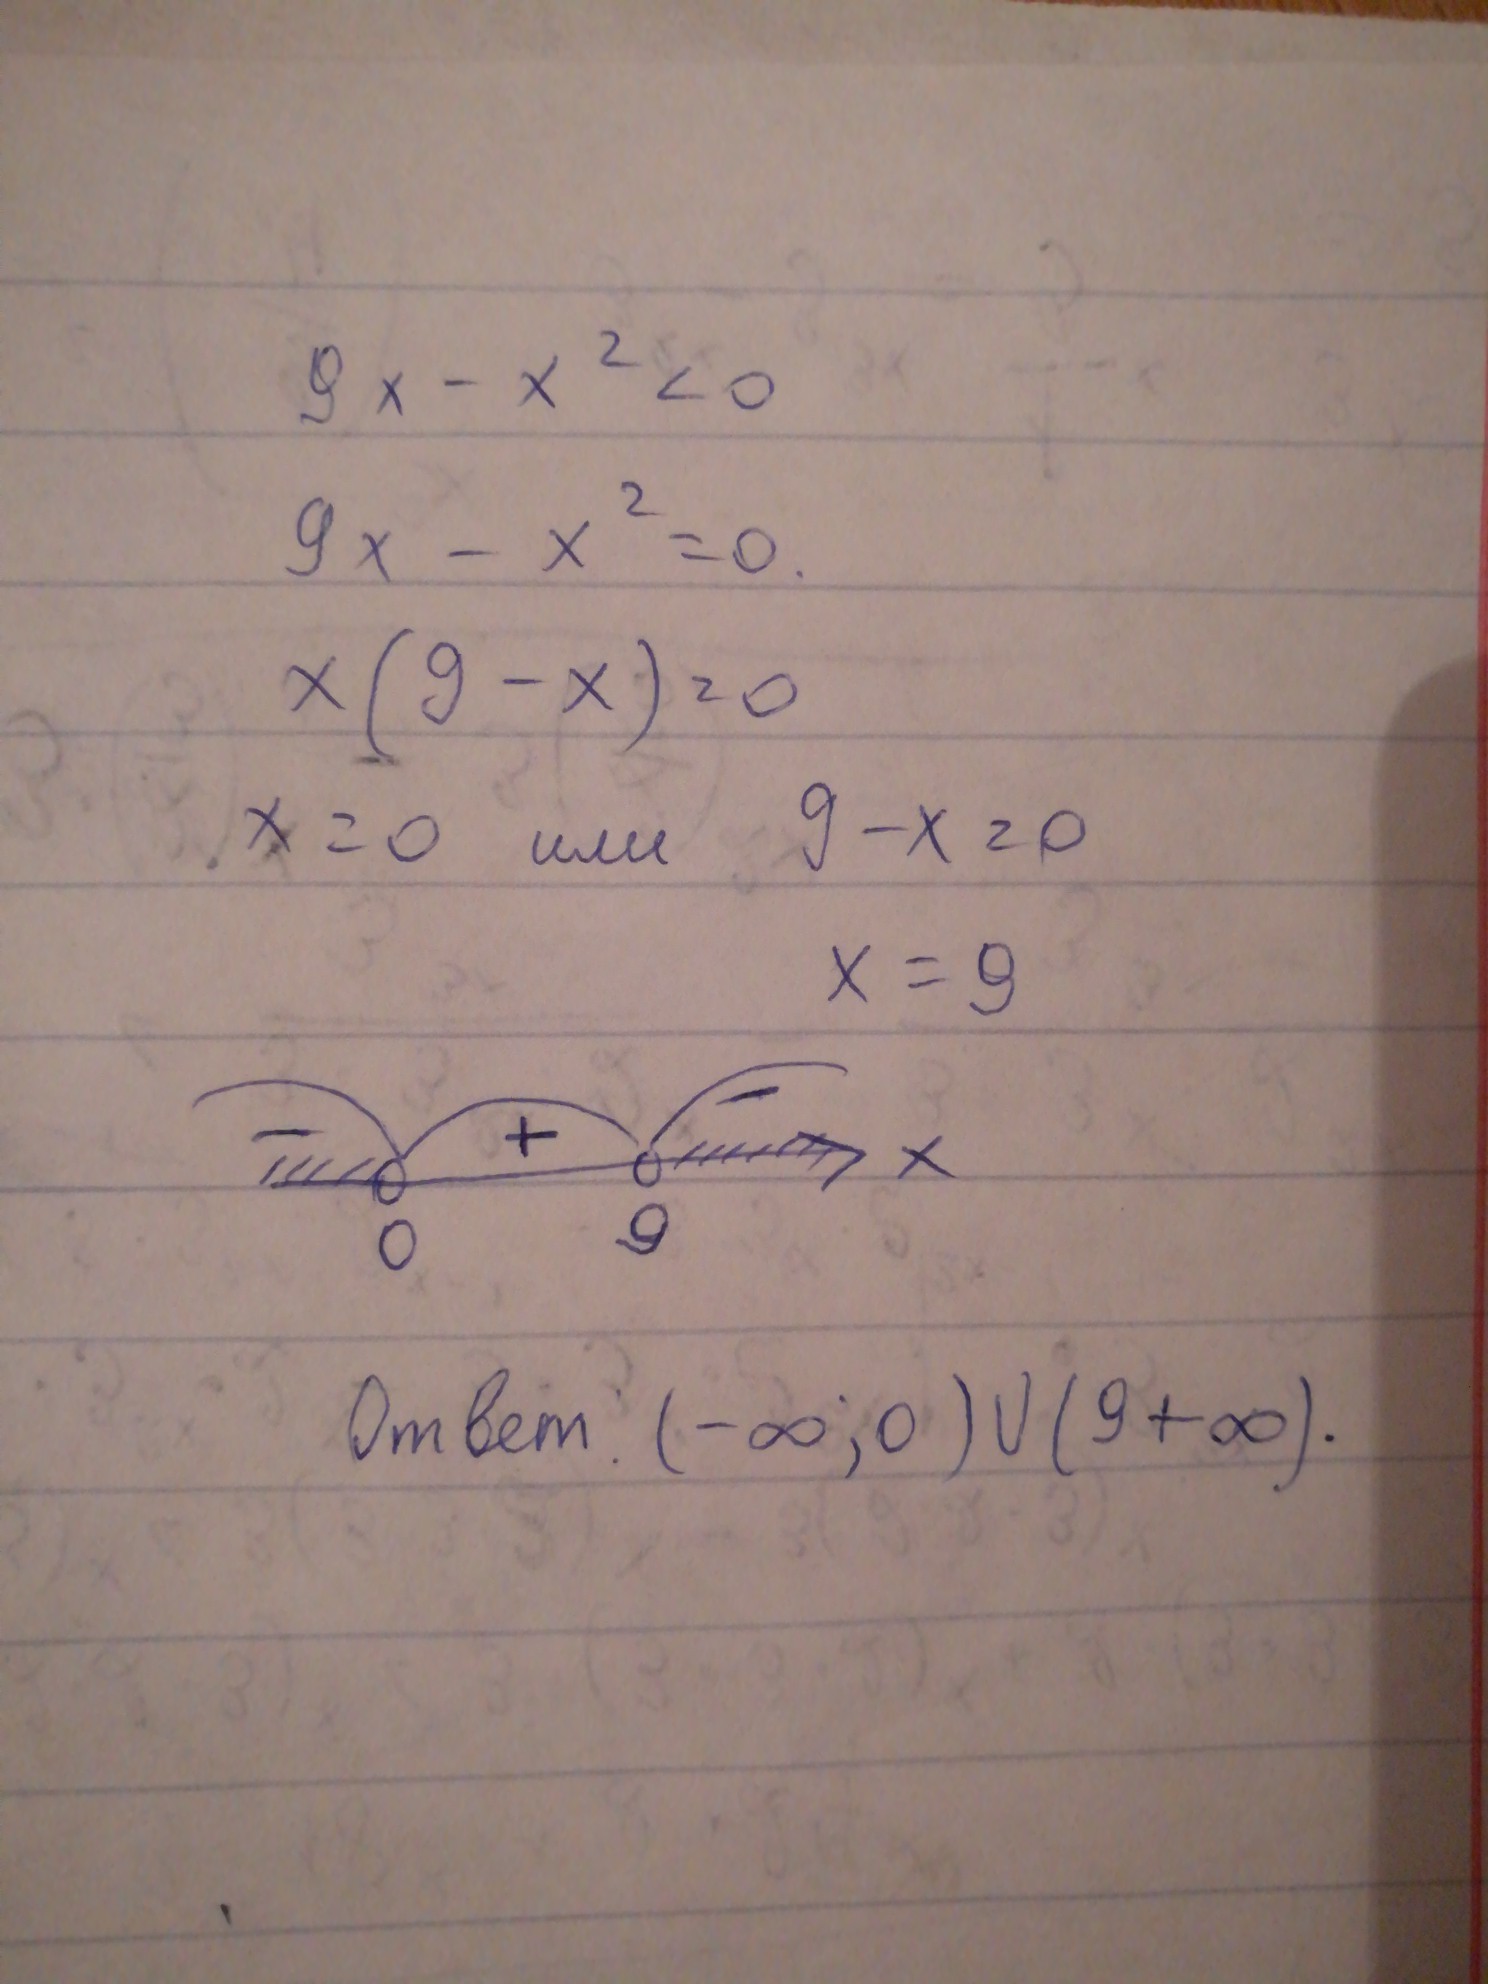 9x - x² < 0
9x - x² = 0.
x(9 - x) = 0
x = 0 или 9 - x = 0
x = 9
- + - x
0 9
Ответ: (-∞; 0) ∪ (9 + ∞).